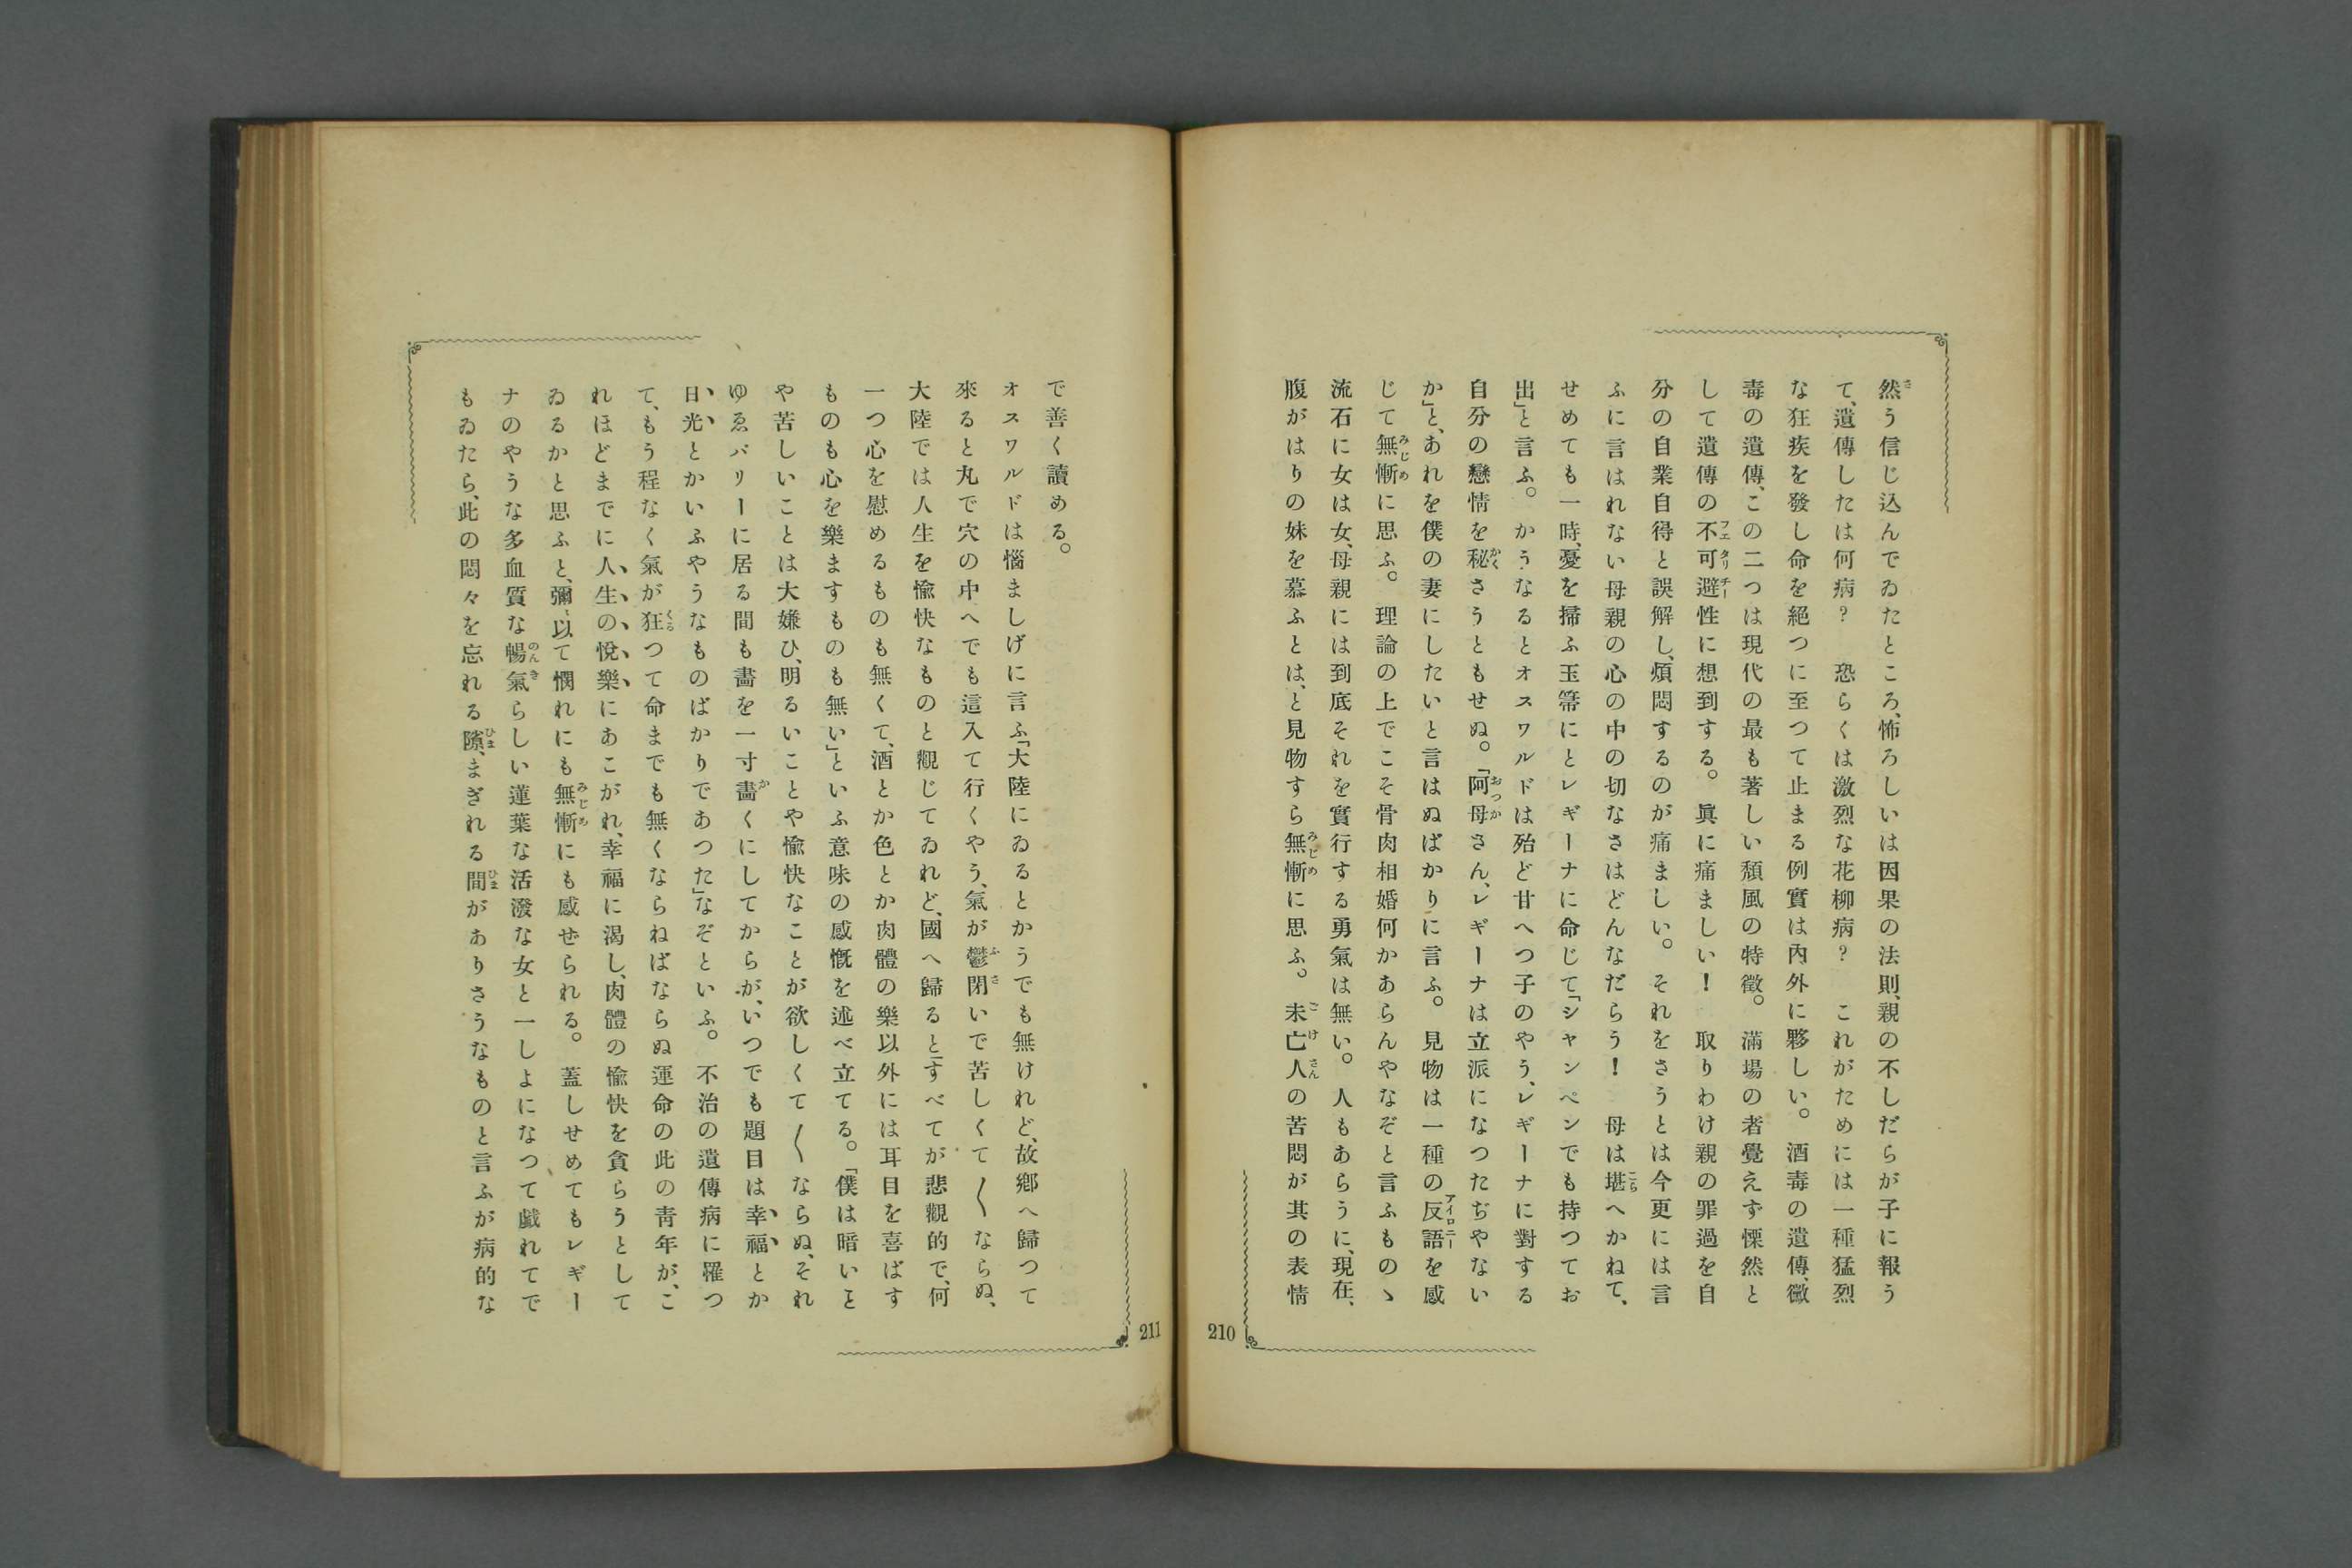 然う信じ込んでゐたところ、怖ろしいは因果の法則、親の不しだらが子に報う
て、遺傳したは何病？　恐らくは激烈な花柳病？　これがためには一種猛烈
な狂疾を發し命を絕つに至つて止まる例實は內外に夥しい。酒毒の遺傳、黴
毒の遺傳、この二つは現代の最も著しい頽風の特徵。滿場の者覺えず慄然と
して遺傳の不可避性に想到する。眞に痛ましい！　取りわけ親の罪過を自
分の自業自得と誤解し、煩悶するのが痛ましい。それをさうとは今更には言
ふに言はれない母親の心の中の切なさはどんなだらう！　母は堪へかねて、
せめても一時、憂を掃ふ玉箒にとレギーナに命じて「シャンペンでも持つてお
出」と言ふ。かうなるとオスワルドは殆ど甘へつ子のやう、レギーナに對する
自分の戀情を秘さうともせぬ。「阿母さん、レギーナは立派になつたぢやない
か」と、あれを僕の妻にしたいと言はぬばかりに言ふ。見物は一種の反語を感
じて無慚に思ふ。理論の上でこそ骨肉相婚何かあらんやなぞと言ふものゝ
流石に女は女、母親には到底それを實行する勇氣は無い。人もあらうに、現在、
腹がはりの妹を慕ふとは、と見物すら無慚に思ふ。未亡人の苦悶が其の表情
210
で善く讀める。
オスワルドは惱ましげに言ふ「大陸にゐるとかうでも無けれど、故鄕へ歸つて
來ると丸で穴の中へでも這入て行くやう、氣が鬱閉いで苦しくて〱ならぬ、
大陸では人生を愉快なものと觀じてゐれど、國へ歸るとすべてが悲觀的で、何
一つ心を慰めるものも無くて、酒とか色とか肉體の樂以外には耳目を喜ばす
ものも心を樂ますものも無い」といふ意味の感慨を述べ立てる。「僕は暗いと
や苦しいことは大嫌ひ、明るいことや愉快なことが欲しくて〱ならぬ、それ
ゆゑパリーに居る間も畵を一寸畵くにしてからが、いつでも題目は幸福とか
日光とかいふやうなものばかりであつた」なぞといふ。不治の遺傳病に罹つ
て、もう程なく氣が狂つて命までも無くならねばならぬ運命の此の靑年が、こ
れほどまでに人生の悅樂にあこがれ、幸福に渴し、肉體の愉快を貪らうとして
ゐるかと思ふと、彌〻以て憫れにも無慚にも感ぜられる。蓋しせめてもレギー
ナのやうな多血質な暢氣らしい蓮葉な活潑な女と一しよになつて戯れてで
もゐたら、此の悶々を忘れる隙、まぎれる間がありさうなものと言ふが病的な
211